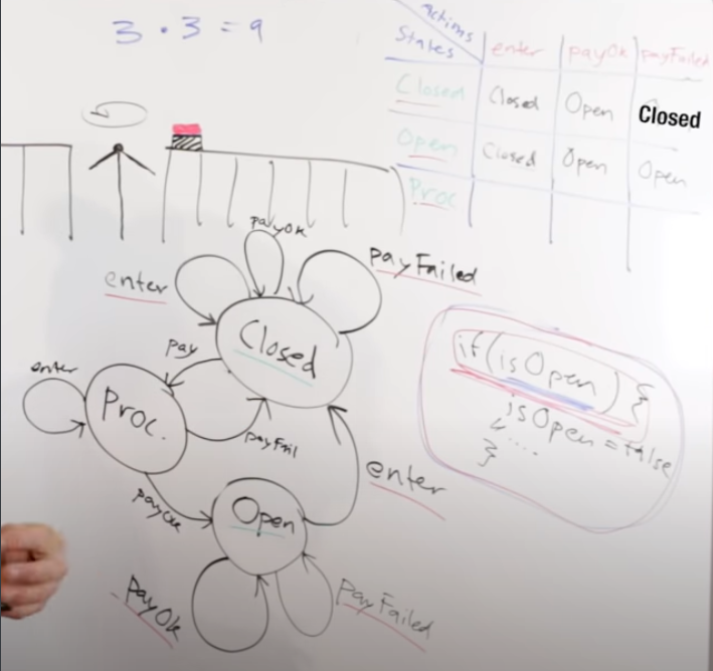 3 · 3 = 9
actions
States
enter
payOk
payFailed
Closed
Closed
Open
Closed
Open
Closed
Open
Open
Proc
payOk
enter
payFailed
Closed
pay
enter
Proc.
payFail
payOk
Open
enter
payOk
payFailed
if(isOpen) {
isOpen = false
....
}